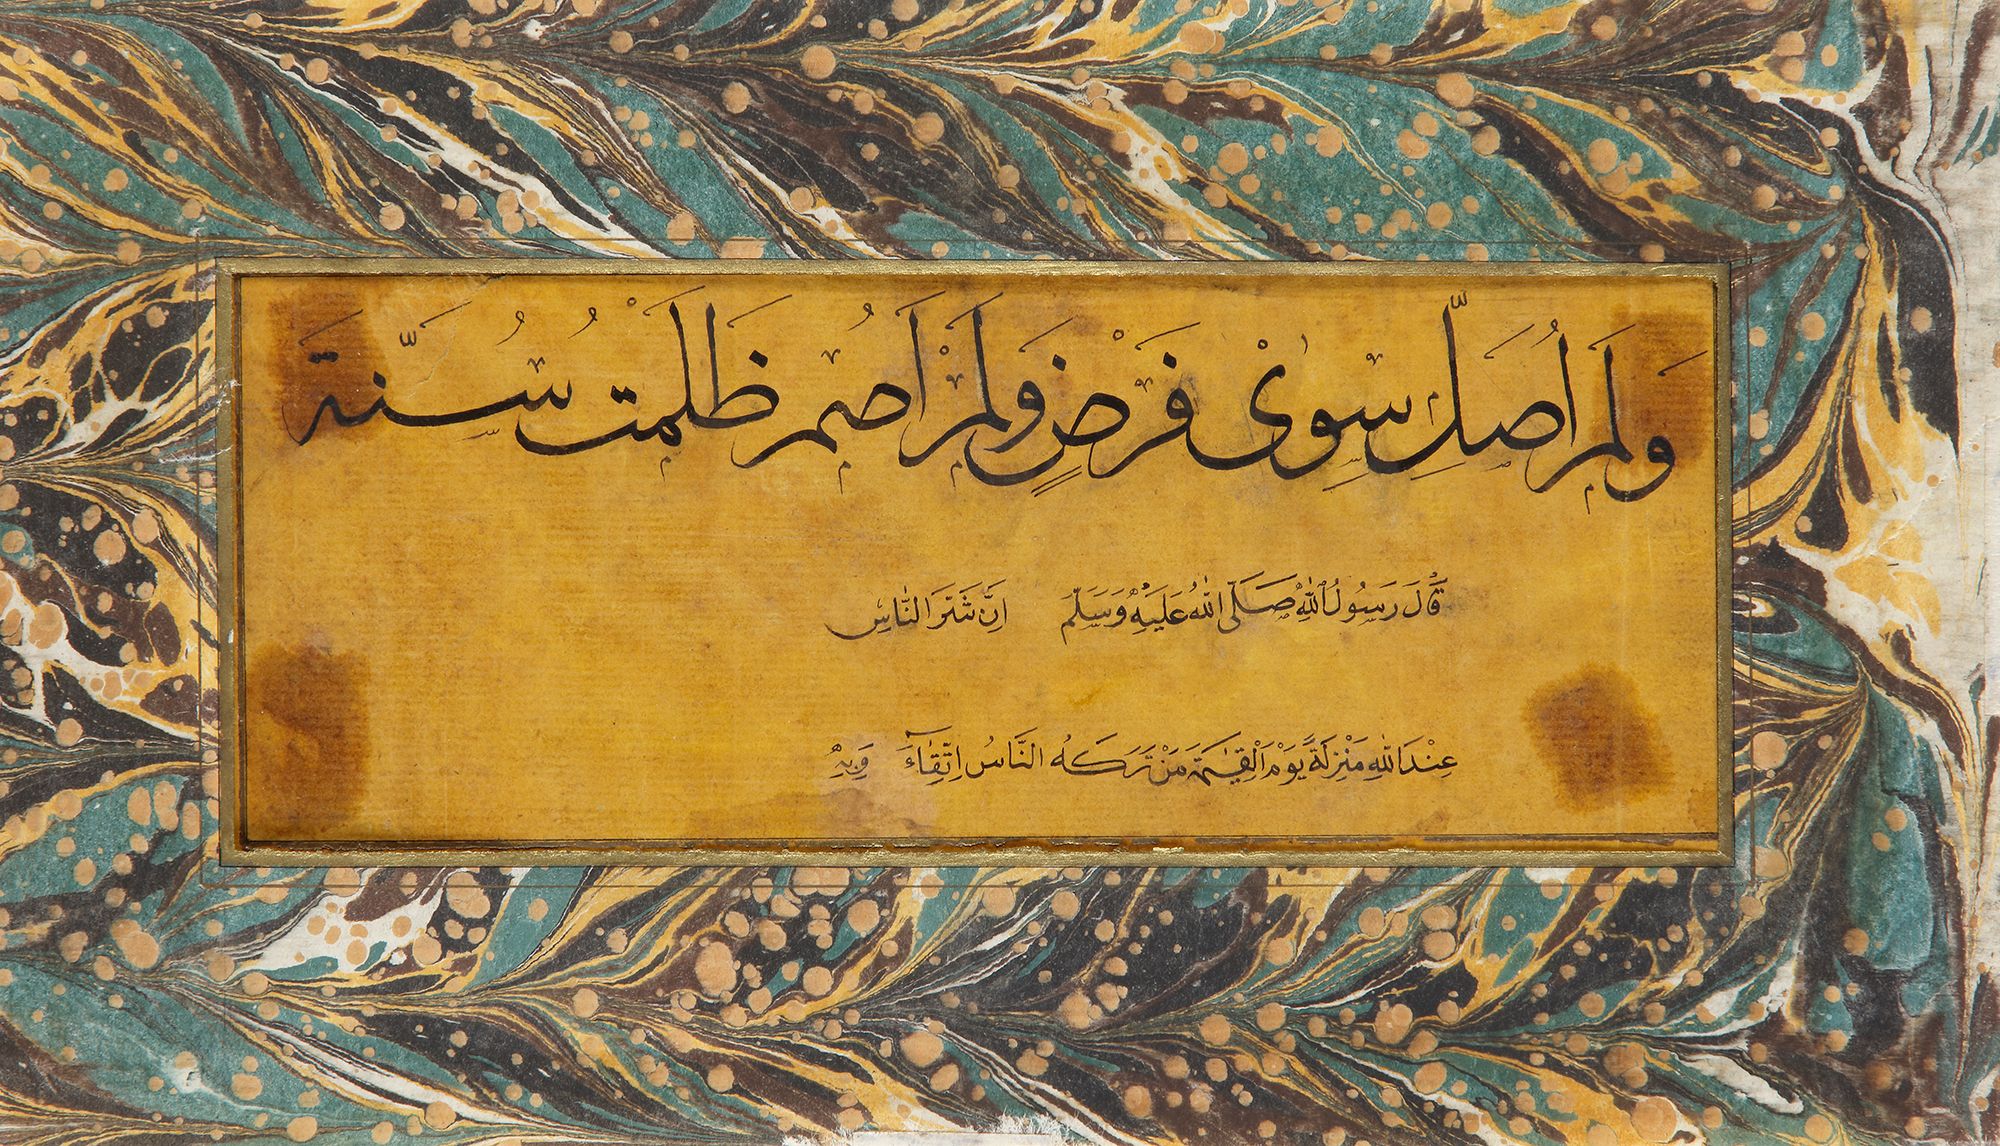 وَلَمْ اُصَلِّ سِوٰى فَرْضٍ وَلَمْ اَصُمْ ظَلَمْتُ سُنَّةَ
قَالَ رَسُولُ اللّٰهِ صَلَّى اللّٰهُ عَلَيْهِ وَسَلَّمَ اِنَّ شَرَّ النَّاسِ
عِنْدَ اللّٰهِ مَنْزِلَةً يَوْمَ الْقِيٰمَةِ مَنْ تَرَكَهُ النَّاسُ اِتِّقَٓاءَ وَبِهِ